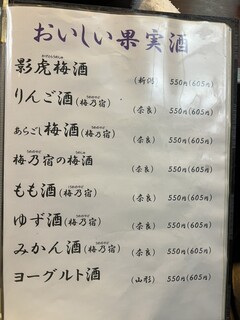 おいしい果実酒
影虎梅酒 (新潟) 550円(605円)
りんご酒(梅乃宿) (奈良) 550円(605円)
あらごし梅酒(梅乃宿) (奈良) 550円(605円)
梅乃宿の梅酒 (奈良) 550円(605円)
もも酒(梅乃宿) (奈良) 550円(605円)
ゆず酒(梅乃宿) (奈良) 550円(605円)
みかん酒(梅乃宿) (奈良) 550円(605円)
ヨーグルト酒 (山形) 550円(605円)